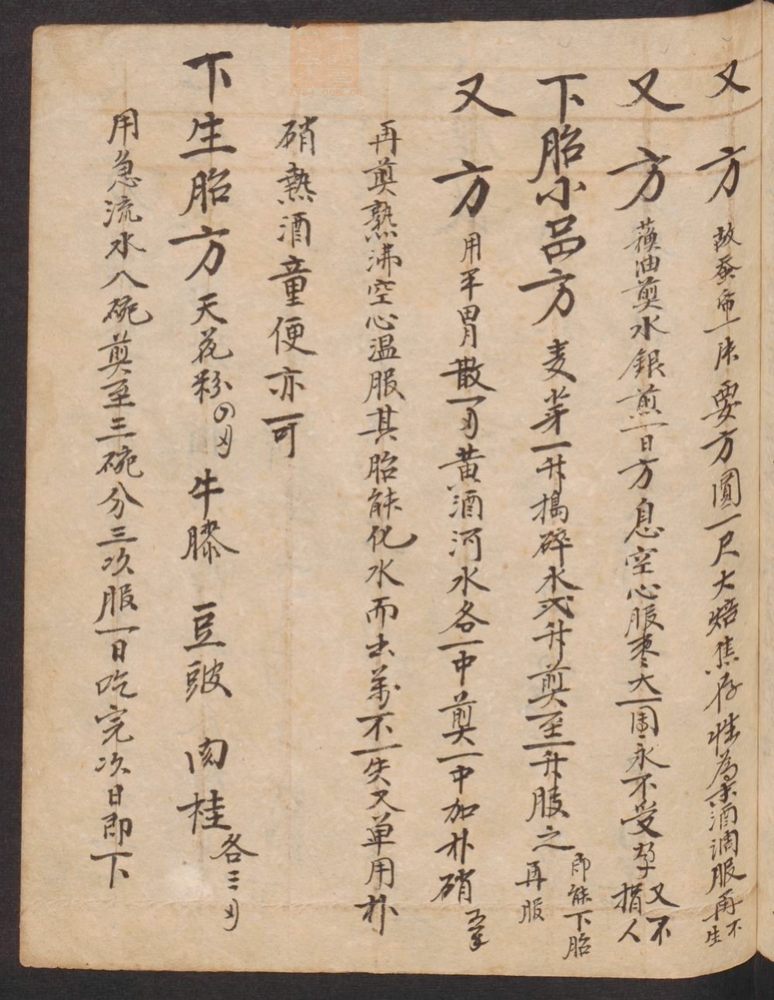 又方 故蚕布一床要方圓一尺大焙焦存性為末酒調服再不生
又方 蔴油煎水銀煎一日方息空心服枣大一圍永不受孕又不損人
下胎小品方 麦芽一升搗碎水弍升煎至一升服之即能下胎 再服
又方 用平胃散一刄黄酒河水各一中煎一中加朴硝五
再煎熟沸空心温服其胎能化水而出萬不一失又單用朴
硝熱酒童便亦可
下生胎方 天花粉四刄 牛膝 豆豉 肉桂各三刄
用急流水八碗煎至三碗分三次服一日吃完次日即下